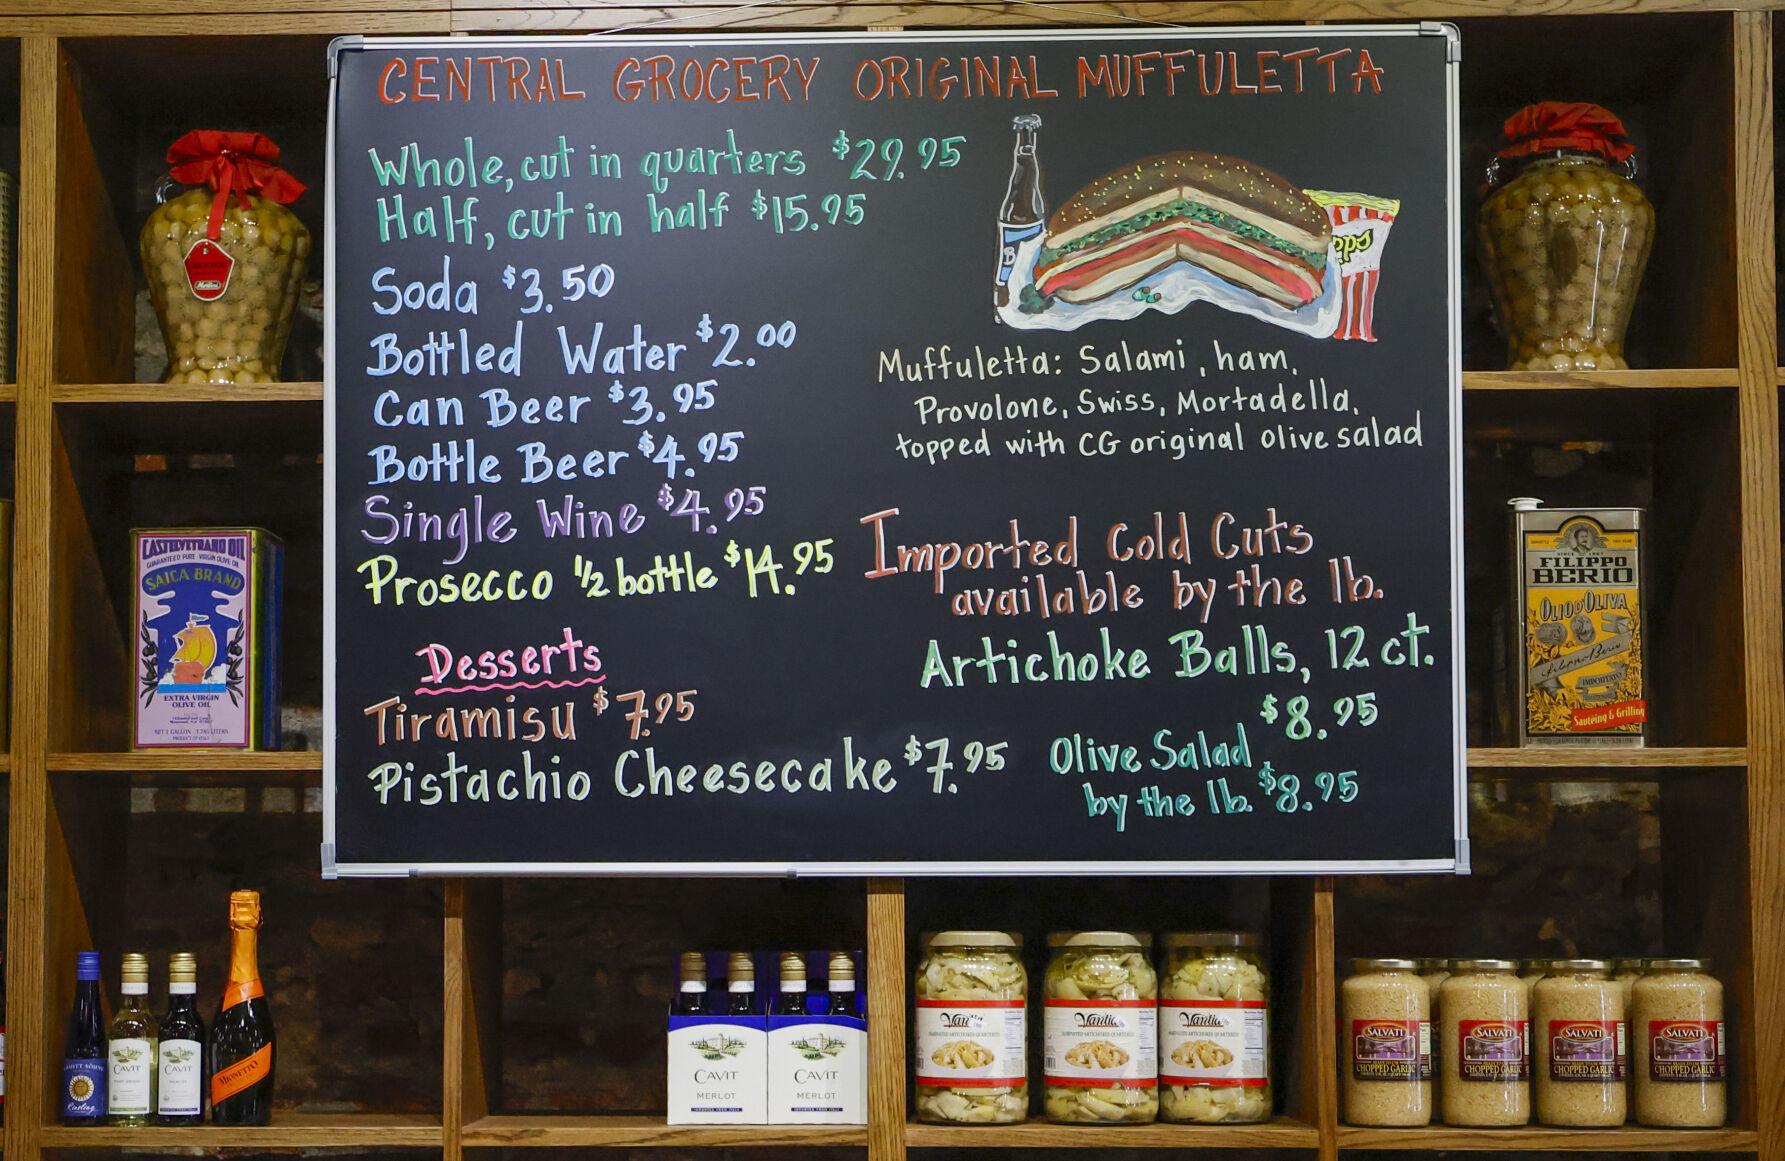 CENTRAL GROCERY ORIGINAL MUFFULETTA
Whole, cut in quarters $29.95
Half, cut in half $15.95
Soda $3.50
Bottled Water $2.00
Can Beer $3.95
Bottle Beer $4.95
Single Wine $4.95
Prosecco 1/2 bottle $14.95
Desserts
Tiramisu $7.95
Pistachio Cheesecake $7.95
B
PPS
Muffuletta: Salami, ham,
Provolone, Swiss, Mortadella,
topped with CG original olive salad
Imported Cold Cuts
available by the lb.
Artichoke Balls, 12 ct.
$8.95
Olive Salad
by the lb. $8.95
CASTELVETRANO OIL
GUARANTEED PURE VIRGIN OLIVE OIL
SAICA BRAND
EXTRA VIRGIN
OLIVE OIL
NET 1 GALLON
FILIPPO
BERIO
OLIO D'OLIVA
Filippo Berio
IMPORTATO
Sautéing & Grilling
Riesling
CAVIT
CAVIT
MIONETTO
CAVIT
MERLOT
IMPORTED FROM ITALY
CAVIT
MERLOT
IMPORTED FROM ITALY
Vantia
MARINATED ARTICHOKES QUARTERED
Vantia
MARINATED ARTICHOKES QUARTERED
Vantia
MARINATED ARTICHOKES QUARTERED
SALVATI
CHOPPED GARLIC
SALVATI
CHOPPED GARLIC
SALVATI
CHOPPED GARLIC
SALVATI
CHOPPED GARLIC